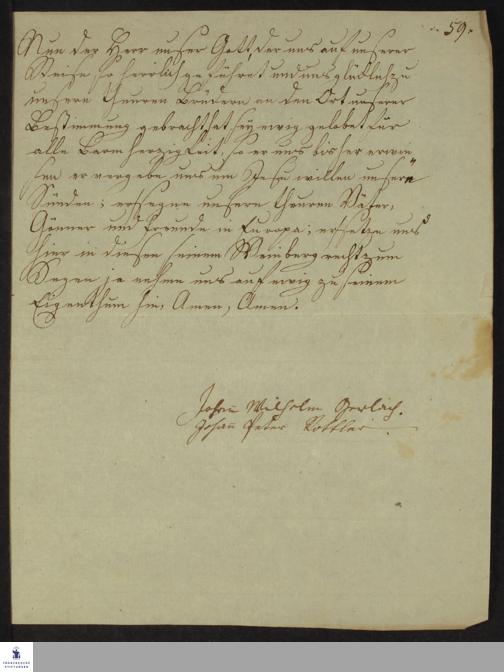 59.
Nun der Herr unser Gott, der uns auf unserer
Reise so herrlich geführet und uns glücklich zu
unsern theuren Brüdern an den Ort unserer
Bestimmung gebracht hat, sey ewig gelobet für
alle Barmherzigkeit, so er uns bisher erwie-
sen er vergebe uns um Jesu willen unsere
Sünden; er segne unsere theuren Väter,
Gönner und Freunde in Europa; er setze uns
hier in diesen seinem Weinberg recht zum
Segen, ja nehme uns auf ewig zu seinem
Eigenthum hin, Amen, Amen.
Johann Wilhelm Gerlach.
Johann Peter Rottler.
FRANCKESCHE
STIFTUNGEN